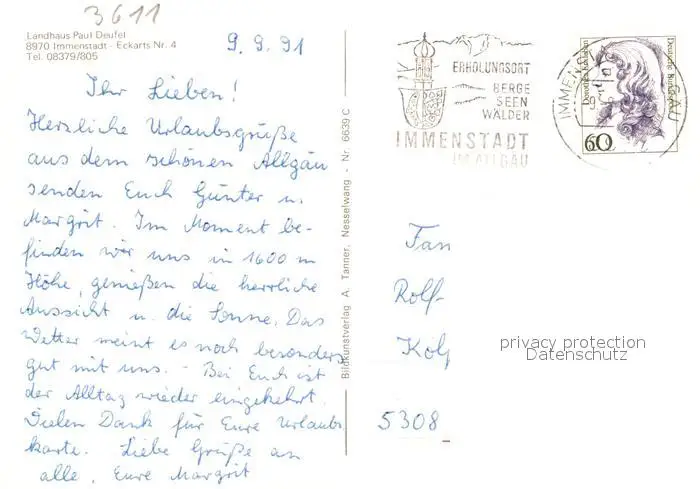 3611
Landhaus Paul Deufel
8970 Immenstadt - Eckarts Nr. 4
Tel. 08379/805
9. 9. 91
Ihr Lieben!
Herzliche Urlaubsgrüße
aus dem schönen Allgäu
senden Euch Günter u.
Margrit. Im Moment be-
finden wir uns in 1600 m
Höhe, genießen die herrliche
Aussicht u. die Sonne. Das
Wetter meint es noch besonders
gut mit uns. - Bei Euch ist
der Alltag wieder eingekehrt.
Vielen Dank für Eure Urlaubs
karte. Liebe Grüße an
alle, Eure Margrit
Bildkunstverlag A. Tanner, Nesselwang - Nr. 6639 C
ERHOLUNGSORT
BERGE
SEEN
WÄLDER
IMMENSTADT
IM ALLGÄU
60
Deutsche Bundespost
Fam
Rolf-
Köl
5308
privacy protection
Datenschutz